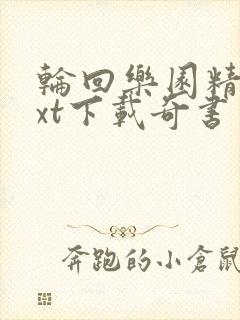 輪回樂園精
xt下載奇書
奔跑的小倉鼠